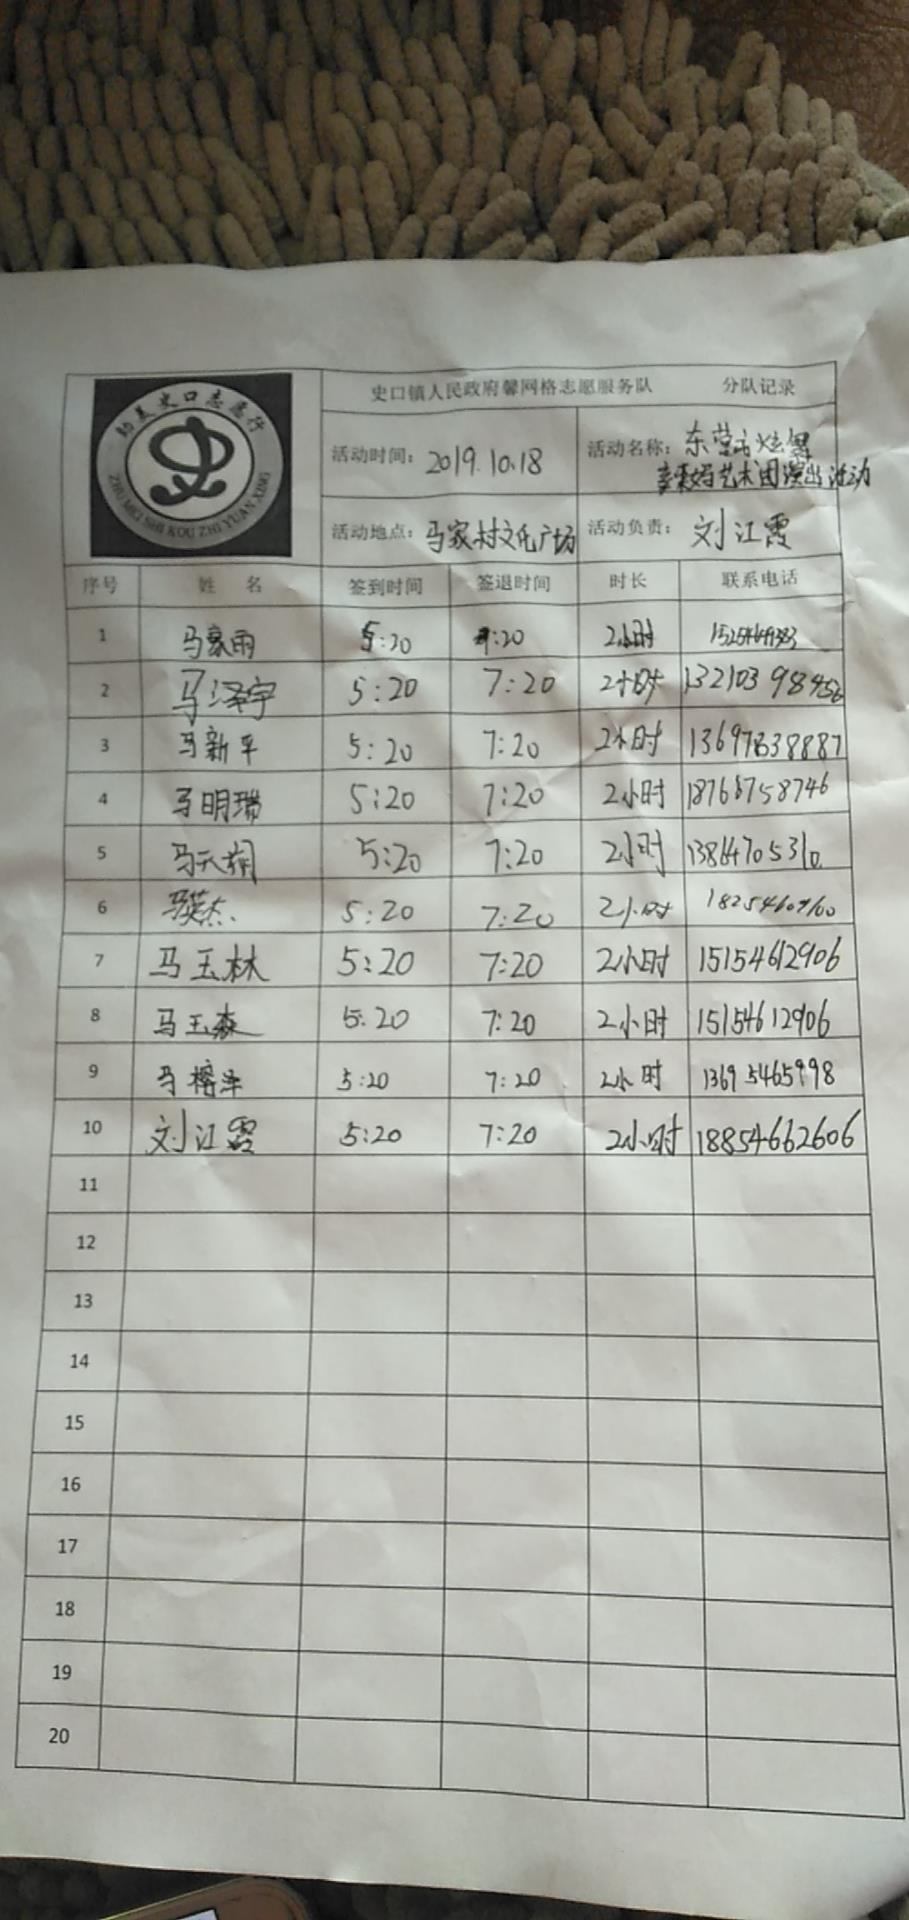 助美史口志愿行
ZHU MEI SHI KOU ZHI YUAN XING
史口镇人民政府馨网格志愿服务队 分队记录
活动时间: 2019.10.18 活动名称: 东营市炫舞
艺术团演出活动
活动地点: 马家村文化广场 活动负责: 刘江霞
序号 姓 名 签到时间 签退时间 时长 联系电话
1 马豪雨 5:20 7:20 2小时
2 马泽宇 5:20 7:20 2小时 13210398456
3 马新平 5:20 7:20 2小时 13697838887
4 马明瑞 5:20 7:20 2小时 18768758746
5 马天 5:20 7:20 2小时 13864705310
6 马英杰 5:20 7:20 2小时
7 马玉林 5:20 7:20 2小时 15154612906
8 马玉森 5:20 7:20 2小时 15154612906
9 马榕泽 5:20 7:20 2小时 13695465998
10 刘江霞 5:20 7:20 2小时 18854662606
11
12
13
14
15
16
17
18
19
20